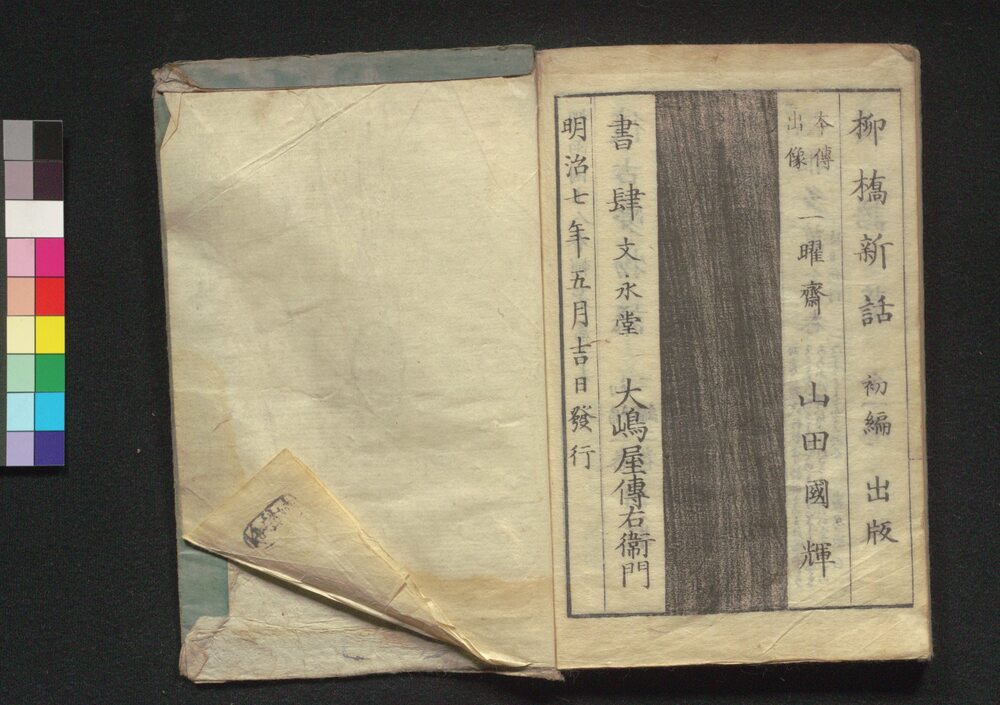 柳橋新話　初編　出版
本傳
出像
一曜齋　山田國輝
書肆　文永堂　大嶋屋傳右衞門
明治七年五月吉日發行